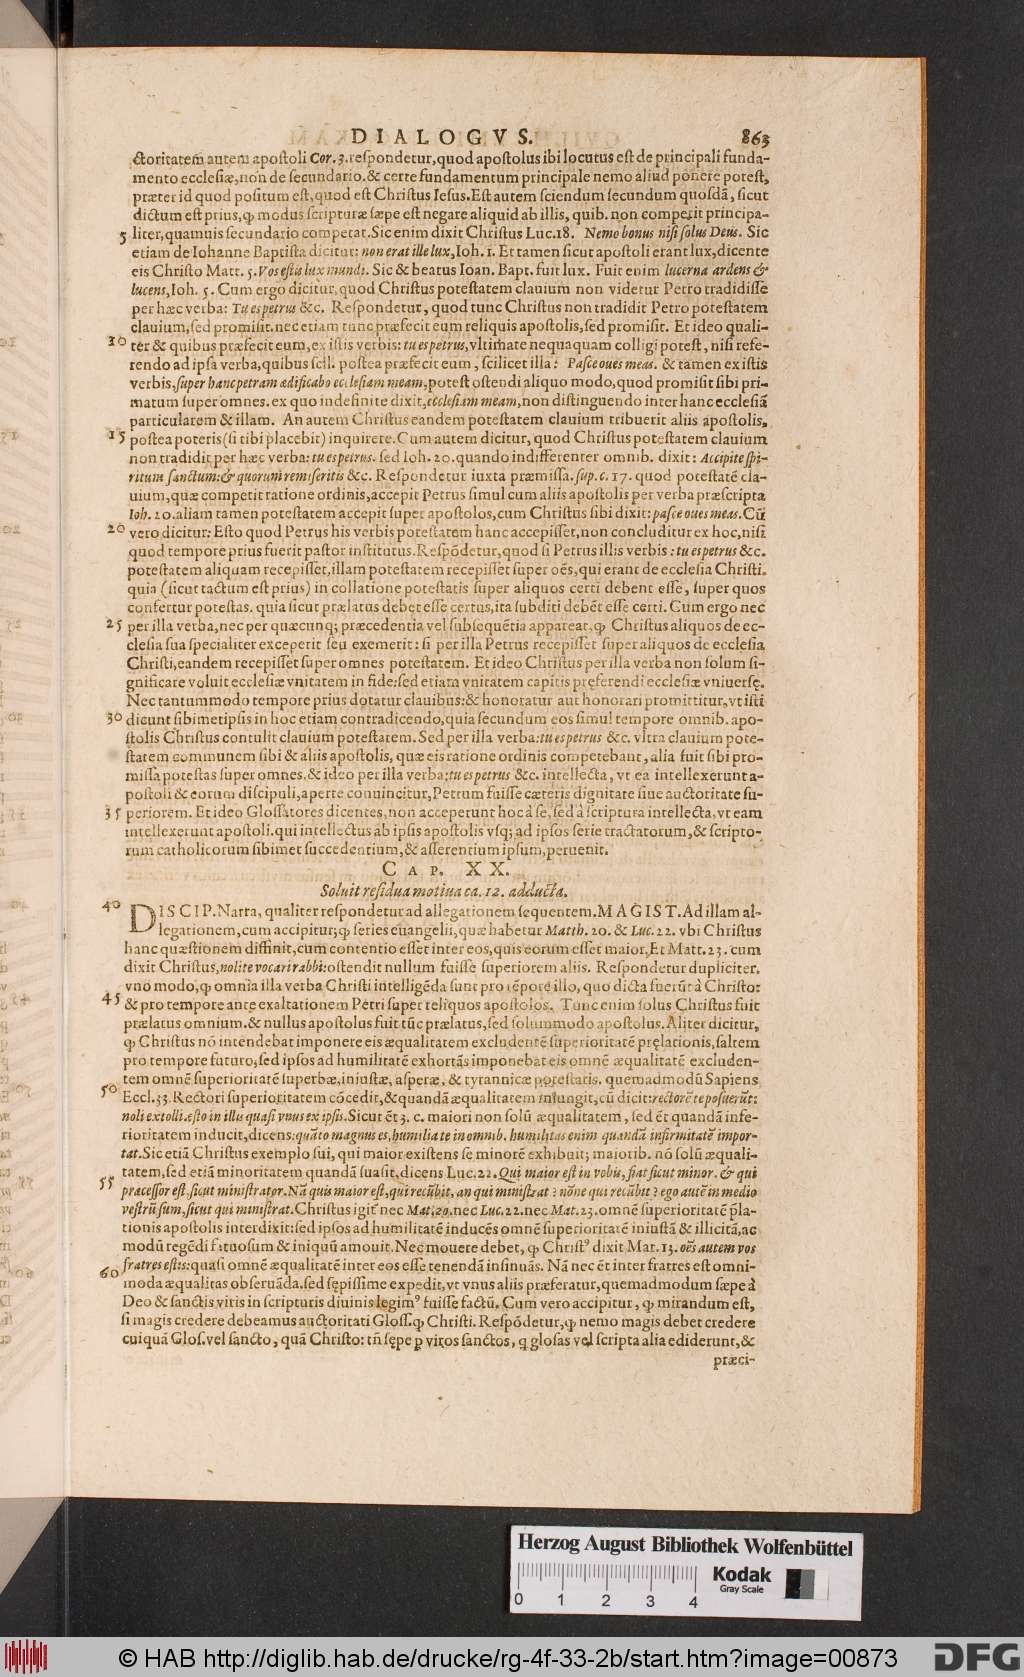 DIALOGVS. 863
ctoritatem autem apostoli Cor. 3. respondetur, quod apostolus ibi locutus est de principali funda-
mento ecclesiæ, non de secundario. & certe fundamentum principale nemo aliud ponere potest,
præter id quod positum est, quod est Christus Iesus. Est autem sciendum secundum quosdā, sicut
dictum est prius, ꝙ modus scripturæ sæpe est negare aliquid ab illis, quib. non comperit principa-
5 liter, quamuis secundario competat. Sic enim dixit Christus Luc. 18. Nemo bonus nisi solus Deus. Sic
etiam de Iohanne Baptista dicitur: non erat ille lux, Ioh. 1. Et tamen sicut apostoli erant lux, dicente
eis Christo Matt. 5. Vos estis lux mundi. Sic & beatus Ioan. Bapt. fuit lux. Fuit enim lucerna ardens &
lucens, Ioh. 5. Cum ergo dicitur, quod Christus potestatem clauium non videtur Petro tradidisse
per hæc verba: Tu es petrus &c. Respondetur, quod tunc Christus non tradidit Petro potestatem
clauium, sed promisit. nec etiam tunc præfecit eum reliquis apostolis, sed promisit. Et ideo quali-
10 ter & quibus præfecit eum, ex istis verbis: tu es petrus, vltimate nequaquam colligi potest, nisi refe-
rendo ad ipsa verba, quibus scil. postea præfecit eum, scilicet illa: Pasce oues meas. & tamen ex istis
verbis, super hanc petram ædificabo ecclesiam meam, potest ostendi aliquo modo, quod promisit sibi pri-
matum super omnes. ex quo indefinite dixit, ecclesiam meam, non distinguendo inter hanc ecclesiā
particularem & illam. An autem Christus eandem potestatem clauium tribuerit aliis apostolis,
15 postea poteris (si tibi placebit) inquirere. Cum autem dicitur, quod Christus potestatem clauium
non tradidit per hæc verba: tu es petrus. sed Ioh. 20. quando indifferenter omnib. dixit: Accipite spi-
ritum sanctum: & quorum remiseritis &c. Respondetur iuxta præmissa. sup. c. 17. quod potestatē cla-
uium, quæ competit ratione ordinis, accepit Petrus simul cum aliis apostolis per verba præscripta
Ioh. 20. aliam tamen potestatem accepit super apostolos, cum Christus sibi dixit: pasce oues meas. Cū
20 vero dicitur: Esto quod Petrus his verbis potestatem hanc accepisset, non concluditur ex hoc, nisi
quod tempore prius fuerit pastor institutus. Respōdetur, quod si Petrus illis verbis: tu es petrus &c.
potestatem aliquam recepisset, illam potestatem recepisset super oēs, qui erant de ecclesia Christi.
quia (sicut tactum est prius) in collatione potestatis super aliquos certi debent esse, super quos
confertur potestas. quia sicut prælatus debet esse certus, ita subditi debēt esse certi. Cum ergo nec
25 per illa verba, nec per quæcunq; præcedentia vel subsequētia appareat, ꝙ Christus aliquos de ec-
clesia sua specialiter exceperit seu exemerit: si per illa Petrus recepisset super aliquos de ecclesia
Christi, eandem recepisset super omnes potestatem. Et ideo Christus per illa verba non solum si-
gnificare voluit ecclesiæ vnitatem in fide: sed etiam vnitatem capitis pręferendi ecclesiæ vniuersę.
Nec tantummodo tempore prius dotatur clauibus: & honoratur aut honorari promittitur, vt isti
30 dicunt sibimetipsis in hoc etiam contradicendo, quia secundum eos simul tempore omnib. apo-
stolis Christus contulit clauium potestatem. Sed per illa verba: tu es petrus &c. vltra clauium pote-
statem communem sibi & aliis apostolis, quæ eis ratione ordinis competebant, alia fuit sibi pro-
missa potestas super omnes. & ideo per illa verba: tu es petrus &c. intellecta, vt ea intellexerunt a-
postoli & eorum discipuli, aperte conuincitur, Petrum fuisse cæteris dignitate siue auctoritate su-
35 periorem. Et ideo Glossatores dicentes, non acceperunt hoc à se, sed à scriptura intellecta, vt eam
intellexerunt apostoli. qui intellectus ab ipsis apostolis vsq; ad ipsos serie tractatorum, & scripto-
rum catholicorum sibimet succedentium, & asserentium ipsum, peruenit.
CAP. XX.
Soluit residua motiua ca. 12. adducta.
40 DISCIP. Narra, qualiter respondetur ad allegationem sequentem. MAGIST. Ad illam al-
legationem, cum accipitur, ꝙ series euangelii, quæ habetur Matth. 20. & Luc. 22. vbi Christus
hanc quæstionem diffinit, cum contentio esset inter eos, quis eorum esset maior, Et Matt. 23. cum
dixit Christus, nolite vocari rabbi: ostendit nullum fuisse superiorem aliis. Respondetur dupliciter.
vno modo, ꝙ omnia illa verba Christi intelligēda sunt pro tēpore illo, quo dicta fuerūt à Christo:
45 & pro tempore ante exaltationem Petri super reliquos apostolos. Tunc enim solus Christus fuit
prælatus omnium. & nullus apostolus fuit tūc prælatus, sed solummodo apostolus. Aliter dicitur,
ꝙ Christus nō intendebat imponere eis æqualitatem excludentē superioritatē pręlationis, saltem
pro tempore futuro, sed ipsos ad humilitatē exhortās imponebat eis omnē æqualitatē excluden-
tem omnē superioritatē superbæ, iniustæ, asperæ, & tyrannicæ potestatis. quemadmodū Sapiens
50 Eccl. 33. Rectori superioritatem cōcedit, & quandā æqualitatem iniungit, cū dicit: rectorē te posuerūt:
noli extolli. esto in illis quasi vnus ex ipsis. Sicut ēt 3. c. maiori non solū æqualitatem, sed ēt quandā infe-
rioritatem inducit, dicens: quāto magnus es, humilia te in omnib. humilitas enim quandā infirmitatē impor-
tat. Sic etiā Christus exemplo sui, qui maior existens se minorē exhibuit; maiorib. nō solū æquali-
tatem, sed etiā minoritatem quandā suasit, dicens Luc. 22. Qui maior est in vobis, fiat sicut minor. & qui
55 præcessor est, sicut ministrator. Nā quis maior est, qui recūbit, an qui ministrat? nōne qui recūbit? ego autē in medio
vestrū sum, sicut qui ministrat. Christus igit̄ nec Mat. 20. nec Luc. 22. nec Mat. 23. omnē superioritatē p̄la-
tionis apostolis interdixit: sed ipsos ad humilitatē inducēs omnē superioritatē iniustā & illicitā, ac
modū regēdi fastuosum & iniquū amouit. Nec mouere debet, ꝙ Christꝰ dixit Mat. 13. oēs autem vos
fratres estis: quasi omnē æqualitatē inter eos esse tenendā insinuās. Nā nec ēt inter fratres est omni-
60 moda æqualitas obseruāda. sed sępissime expedit, vt vnus aliis præferatur, quemadmodum sæpe à
Deo & sanctis viris in scripturis diuinis legimꝰ fuisse factū. Cum vero accipitur, ꝙ mirandum est,
si magis credere debeamus auctoritati Gloss. ꝙ Christi. Respōdetur, ꝙ nemo magis debet credere
cuiquā Glos. vel sancto, quā Christo: tn̄ sępe ꝑ viros sanctos, q glosas vel scripta alia ediderunt, &
præci-
Herzog August Bibliothek Wolfenbüttel
Kodak
Gray Scale
0 1 2 3 4
© HAB http://diglib.hab.de/drucke/rg-4f-33-2b/start.htm?image=00873
DFG